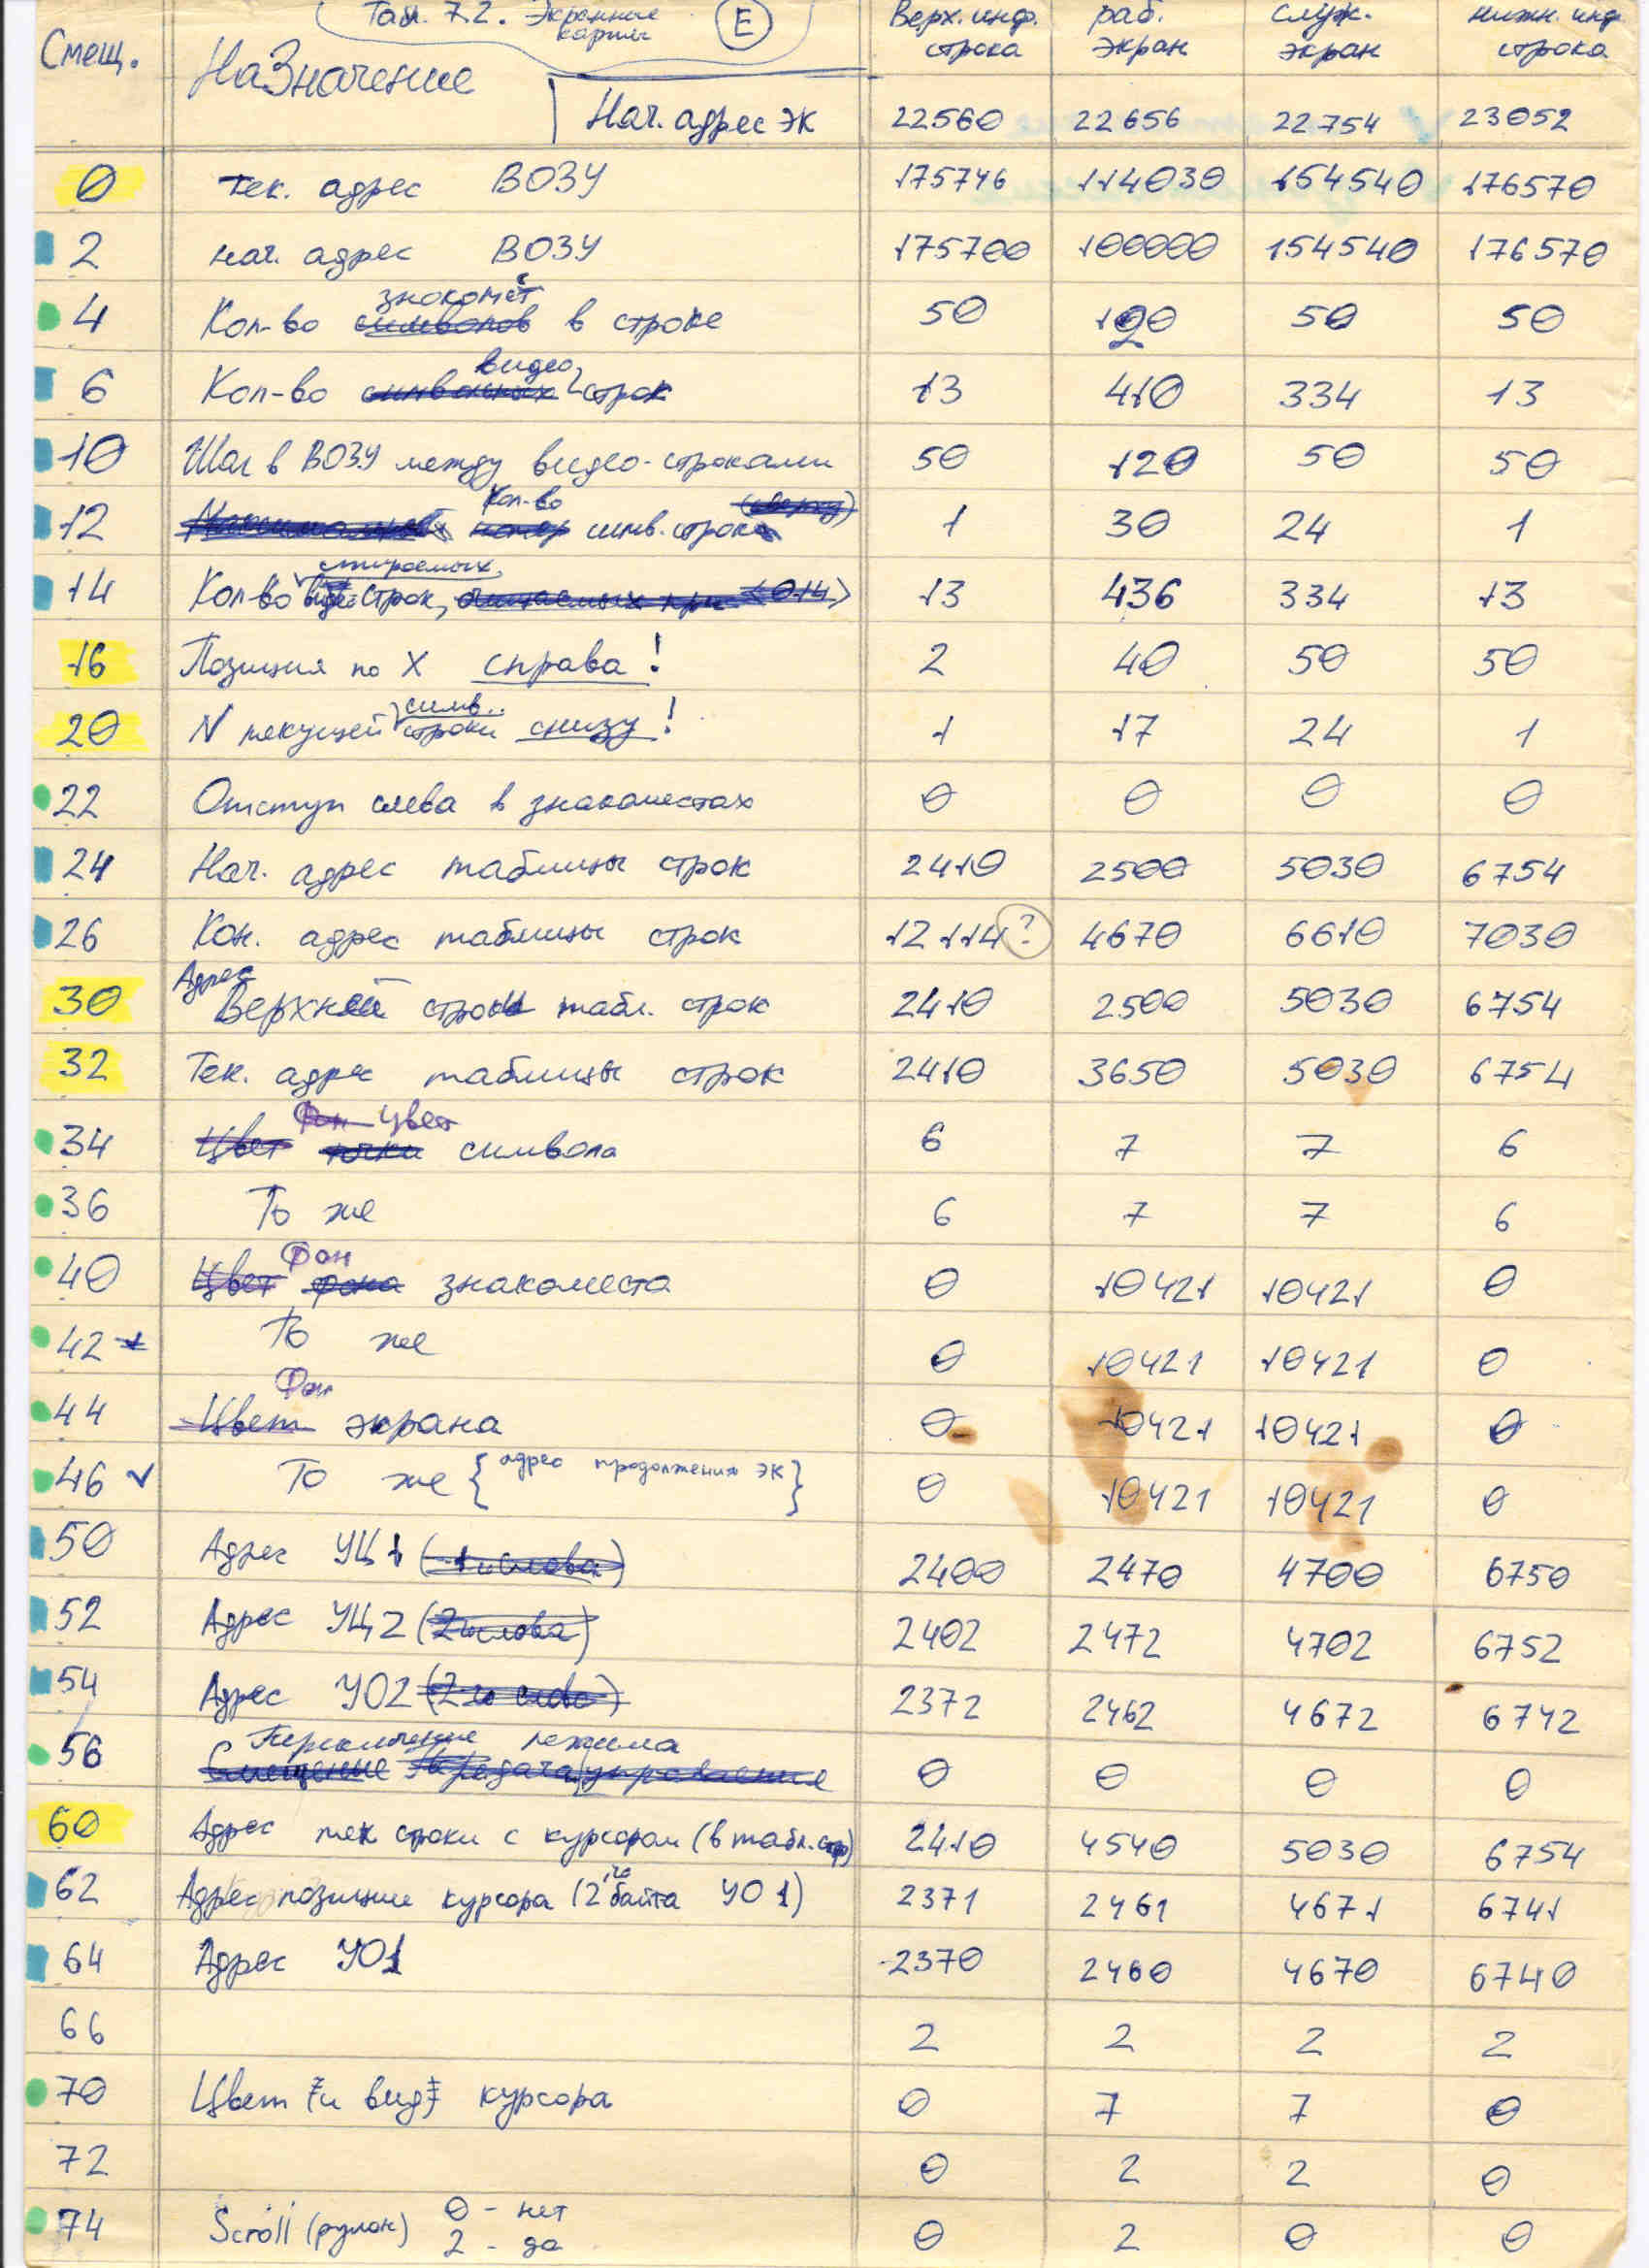 Табл. 7.2. Экранные карты Ⓔ
Смещ. Назначение Верх. инф. строка раб. экран служ. экран нижн. инф. строка
Нач. адрес ЭК 22560 22656 22754 23052
0 Тек. адрес ВОЗУ 175746 114030 154540 176570
2 нач. адрес ВОЗУ 175700 100000 154540 176570
4 Кол-во знакомест символов в строке 50 120 50 50
6 Кол-во символьных видео строк 13 410 334 13
10 Шаг в ВОЗУ между видео-строками 50 120 50 50
12 кол-во номер симв. строк (сверху) 1 30 24 1
14 Кол-во стираемых видео строк, 13 436 334 13
16 Позиция по X справа! 2 40 50 50
20 N текущей симв. строки снизу! 1 17 24 1
22 Отступ слева в знакоместах 0 0 0 0
24 Нач. адрес таблицы строк 2410 2500 5030 6754
26 Кон. адрес таблицы строк 12114? 4670 6610 7030
30 Адрес Верхней строки табл. строк 2410 2500 5030 6754
32 Тек. адрес таблицы строк 2410 3650 5030 6754
34 Цвет точки Фон Цвет символа 6 7 7 6
36 То же 6 7 7 6
40 Цвет фона Фон знакоместа 0 10421 10421 0
42 То же 0 10421 10421 0
44 Цвет Фон экрана 0 10421 10421 0
46 ✓ То же {адрес продолжения ЭК} 0 10421 10421 0
50 Адрес УЦ1 2400 2470 4700 6750
52 Адрес УЦ2 2402 2472 4702 6752
54 Адрес УО2 2372 2462 4672 6742
56 Переключение режима 0 0 0 0
60 Адрес тек строки с курсором (в табл. стр) 2410 4540 5030 6754
62 Адрес позиции курсора (2го байта УО1) 2371 2461 4671 6741
64 Адрес УО1 2370 2460 4670 6740
66 2 2 2 2
70 Цвет {и вид} курсора 0 7 7 0
72 0 2 2 0
74 Scroll (рулон) 0 - нет 2 - да 0 2 0 0